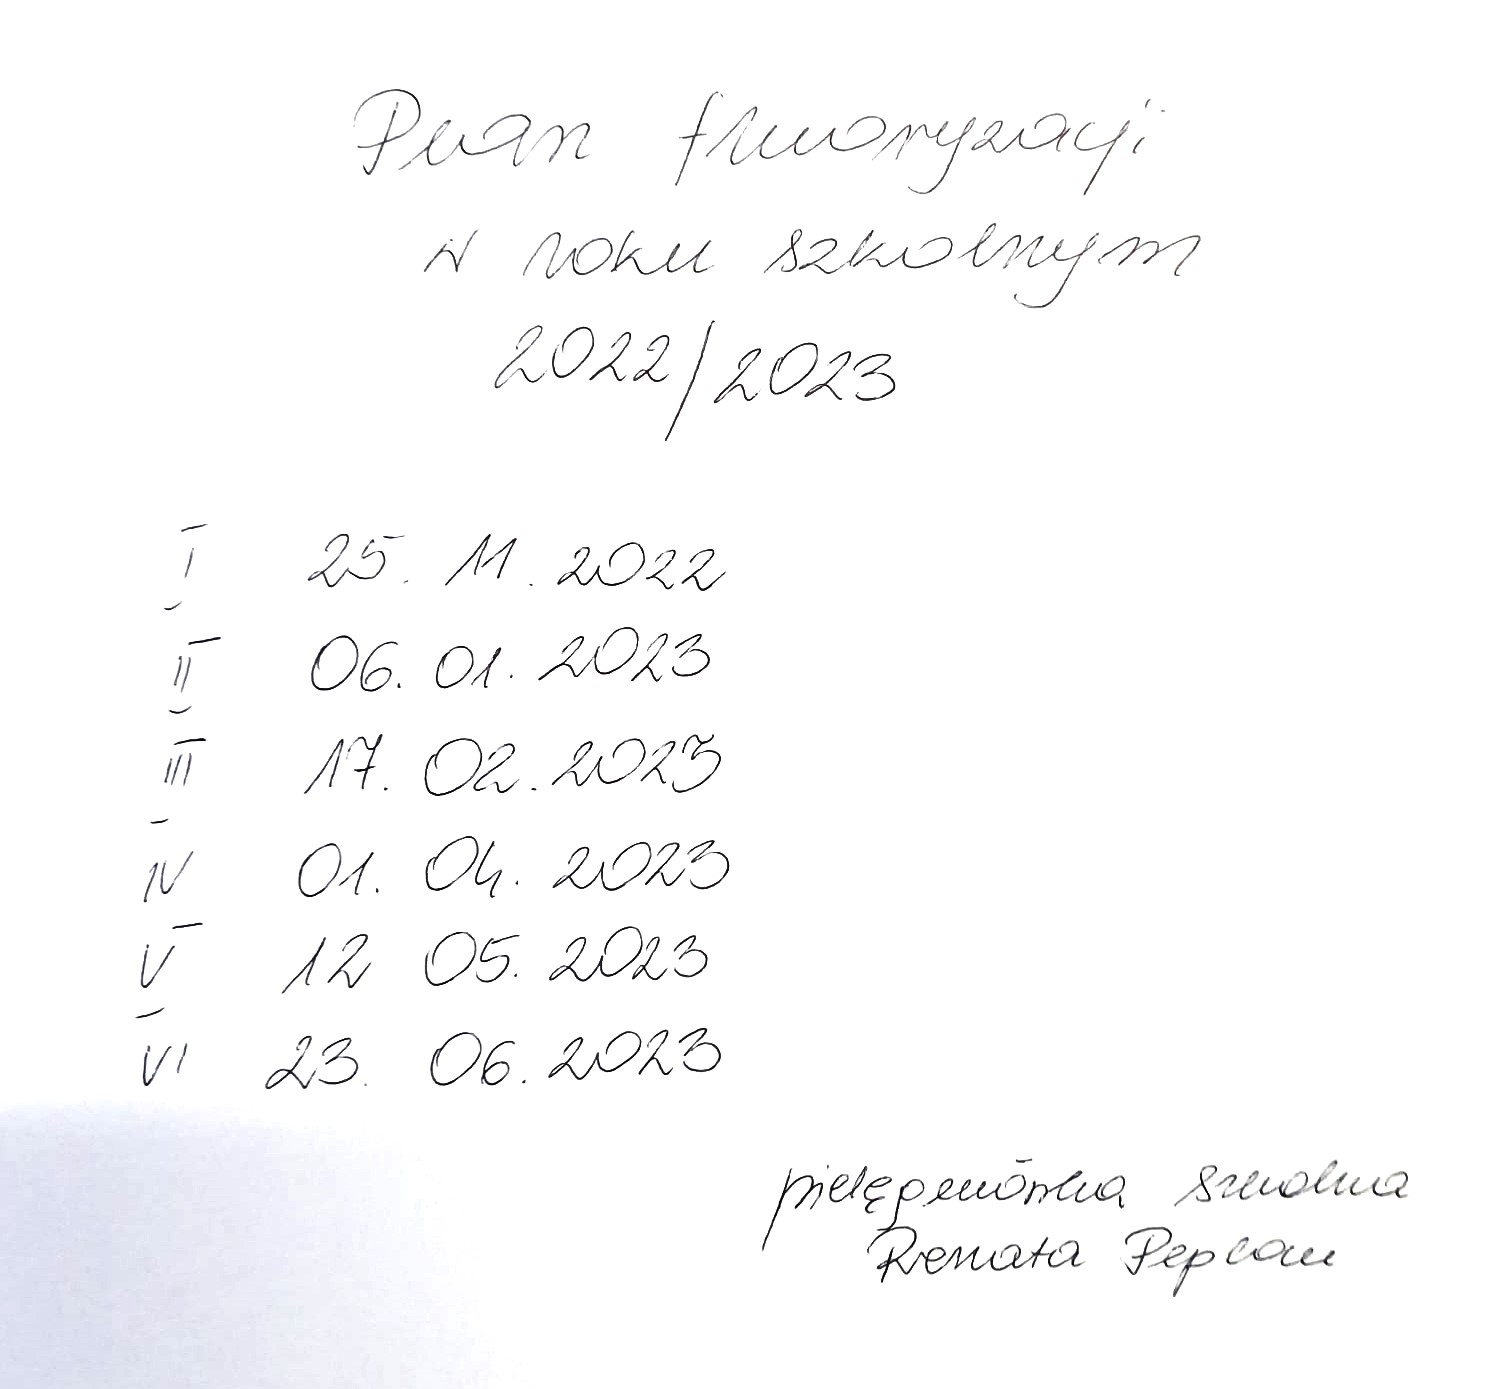 Plan fluoryzacji
w roku szkolnym
2022/2023
I 25. 11. 2022
II 06. 01. 2023
III 17. 02. 2023
IV 01. 04. 2023
V 12 05. 2023
VI 23. 06. 2023
pielęgniarka szkolna
Renata